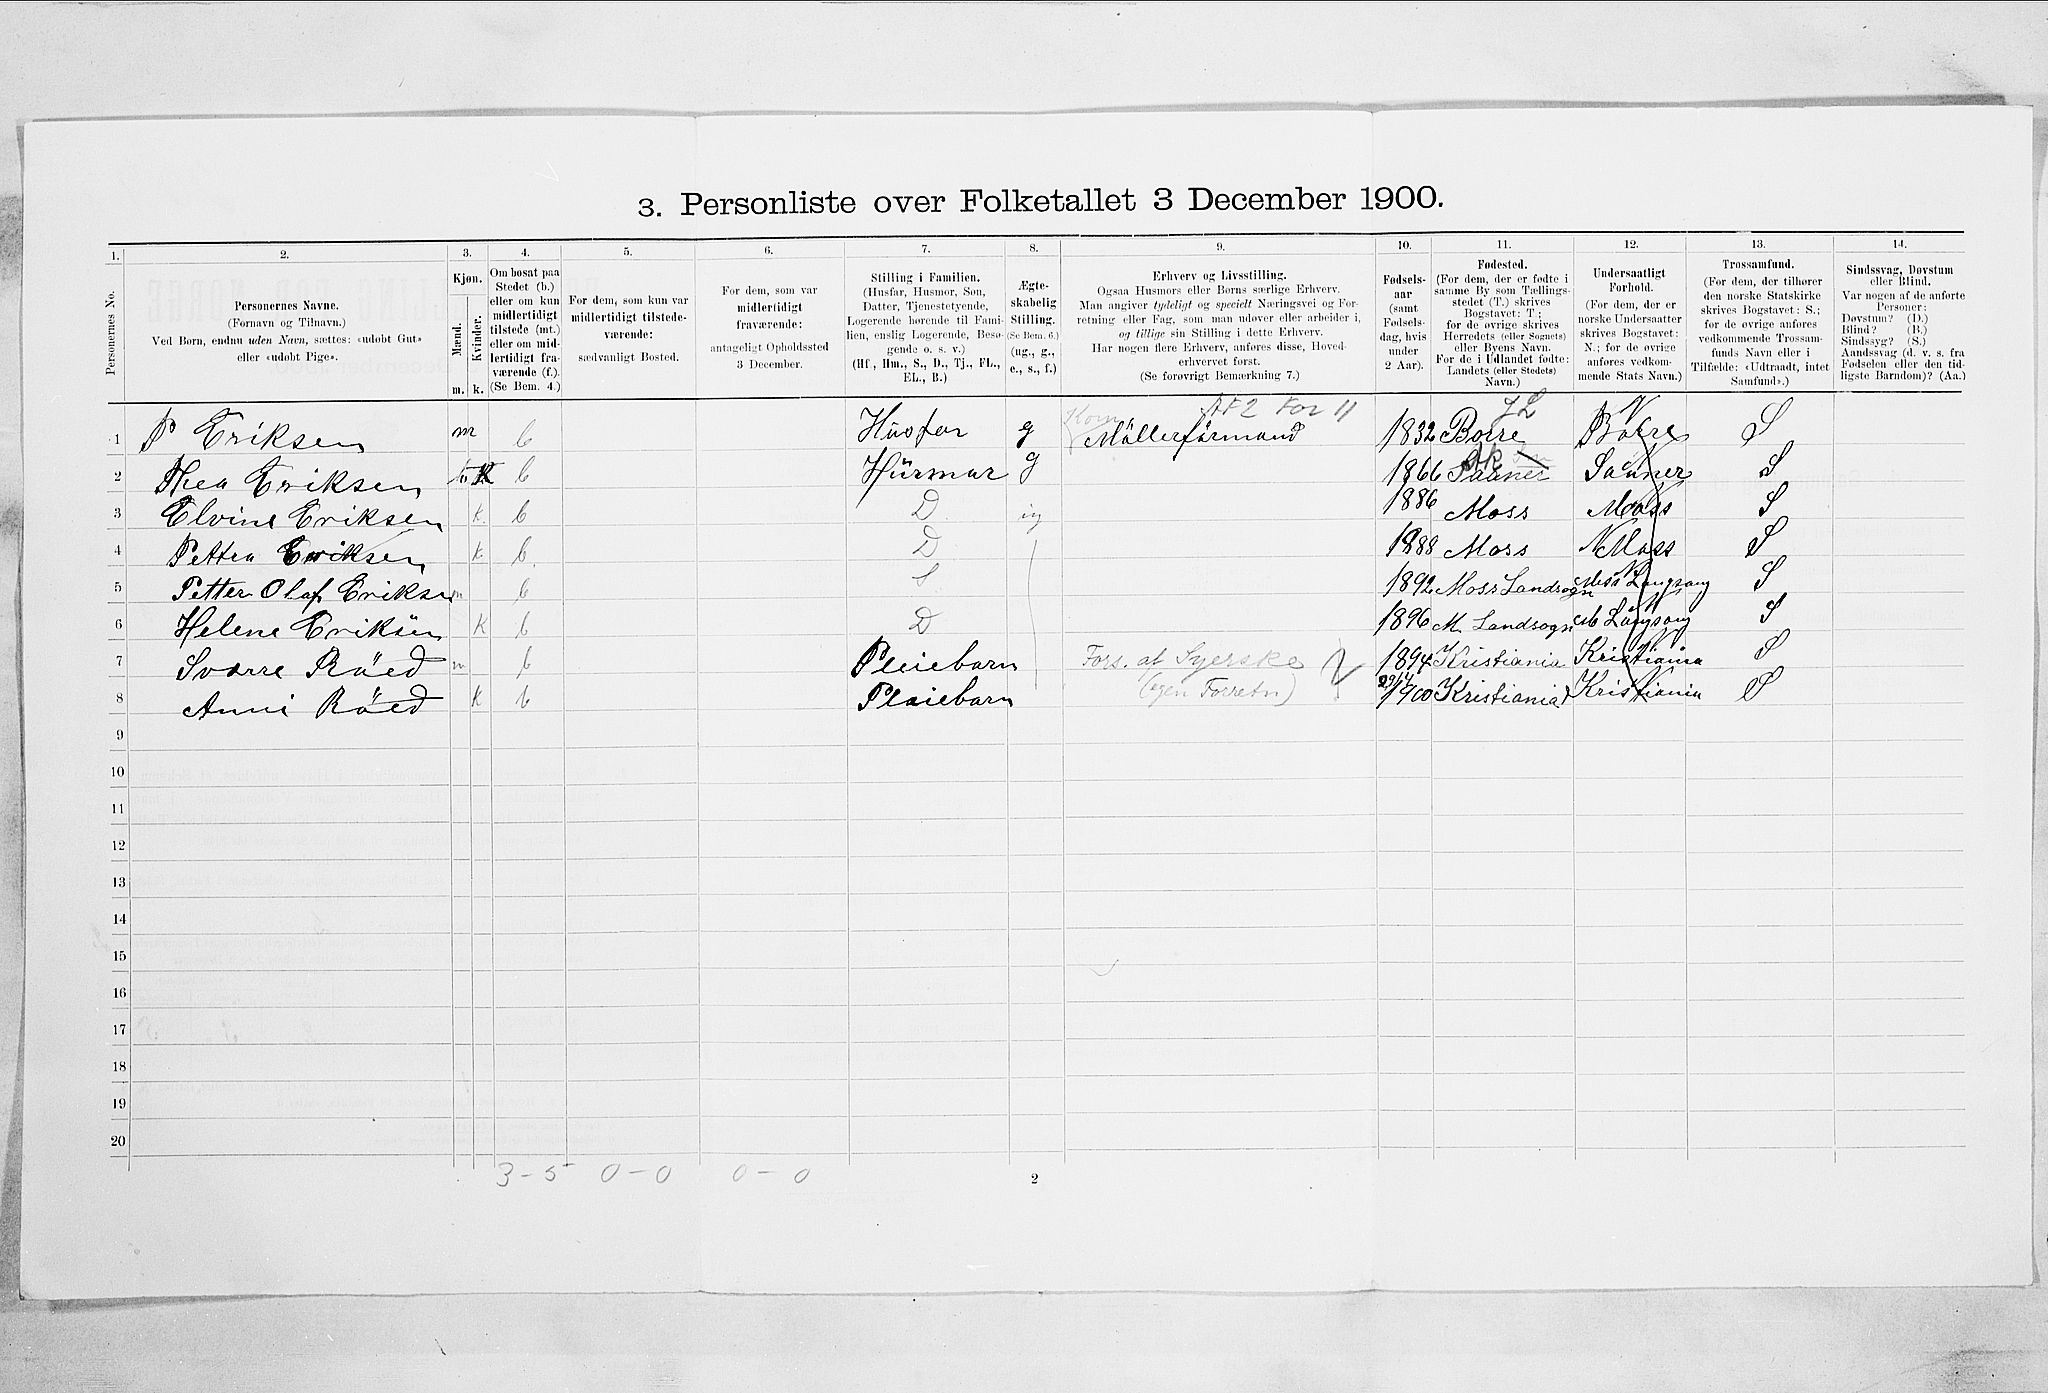 3. Personliste over Folketallet 3 December 1900.
1. 2. 3. 4. 5. 6. 7. 8. 9. 10. 11. 12. 13. 14.
Personernes No.
Personernes Navne.
(Fornavn og Tilnavn.)
Ved Børn, endnu uden Navn, sættes: «udøbt Gut»
eller «udøbt Pige».
Kjøn.
Mænd.
Kvinder.
m. k.
Om bosat paa
Stedet (b.)
eller om kun
midlertidigt
tilstede (mt.)
eller om mid-
lertidigt fra-
værende (f.)
(Se Bem. 4.)
For dem, som kun var
midlertidigt tilstede-
værende:
sædvanligt Bosted.
For dem, som var
midlertidigt
fraværende:
antageligt Opholdssted
3 December.
Stilling i Familien.
(Husfar, Husmor, Søn,
Datter, Tjenestetyende,
Logerende hørende til Fami-
lien, enslig Logerende, Besø-
gende o. s. v.)
(Hf., Hm., S., D., Tj., FL.,
EL., B.)
Ægte-
skabelig
Stilling.
(Se Bem. 6.)
(ug., g.,
e., s., f.)
Erhverv og Livsstilling.
Ogsaa Husmors eller Børns særlige Erhverv.
Man angiver tydeligt og specielt Næringsvei og For-
retning eller Fag, som man udøver eller arbeider i,
og tillige sin Stilling i dette Erhverv.
Har nogen flere Erhverv, anføres disse, Hoved-
erhvervet først.
(Se forøvrigt Bemærkning 7.)
Fødsels-
aar
(samt
Fødsels-
dag, hvis
under
2 Aar).
Fødested.
(For dem, der er fødte i
samme By som Tællings-
stedet (T.) skrives
Bogstavet: T.;
for de øvrige skrives
Herredets (eller Sognets)
eller Byens Navn.
For de i Udlandet fødte:
Landets (eller Stedets)
Navn.)
Undersaatligt
Forhold.
(For dem, der er
norske Undersaatter
skrives Bogstavet:
N.; for de øvrige
anføres vedkom-
mende Stats Navn.)
Trossamfund.
(For dem, der tilhører
den norske Statskirke
skrives Bogstavet: S.;
for de øvrige anføres
vedkommende Trossam-
funds Navn eller i
Tilfælde: «Udtraadt, intet
Samfund».)
Sindssvag, Døvstum
eller Blind.
Var nogen af de anførte
Personer:
Døvstum? (D.)
Blind? (B.)
Sindssyg? (S.)
Aandssvag (d. v. s. fra
Fødselen eller den tid-
ligste Barndom)? (Aa.)
Kom AF2 For 11 JL N
1 P Eriksen m b Husfar g Möllerförmand 1832 Borre Borre S
Ak
2 Thea Eriksen K b Hürmar g 1866 Saaner Saaner S
3 Elvine Eriksen K. b D ug 1886 Moss Moss S
4 Pettra Eriksen K b. D 1888 Moss N Moss S
5 Petter Olaf Eriksen m b S 1892 Moss Landsogn S
6 Helene Eriksen K b D 1896 M Landsogn S
7 Svarre Röed m b Pleiebarn Fors. af Syerske ? 1894 Kristiania Kristiania S
8 Anni Röed K b Pleiebarn (egen Forretn) 1900 Kristiania Kristiania S
9
10
11
12
13
14
15
16
17
18
19
20
3 - 5 0 - 0 0 - 0
2